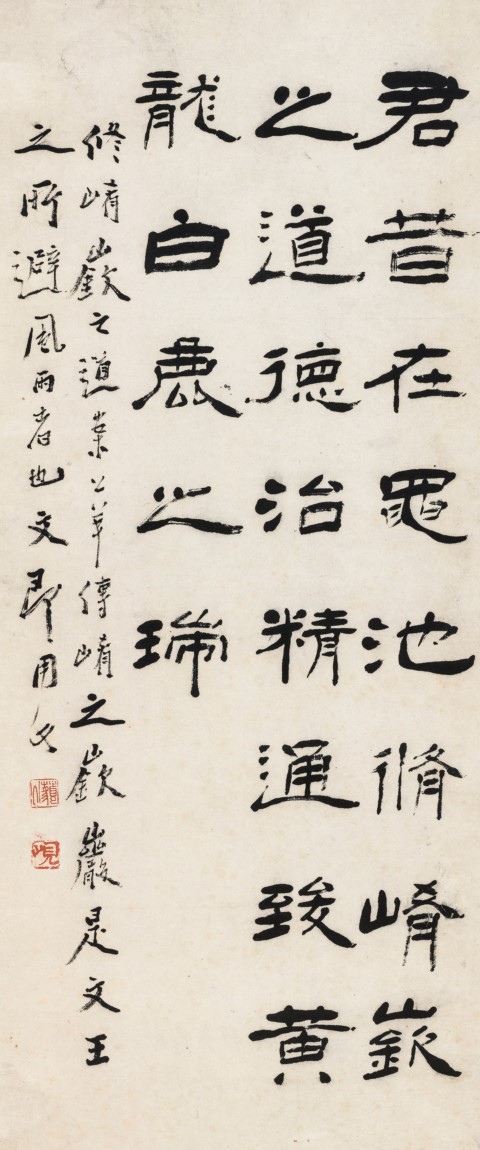 君昔在黽池脩崤嶔
之道德治精通致黃
龍白鹿之瑞
修崤嶔之道案公羊傳崤之嶔巖是文王
之所避風雨者也文即用